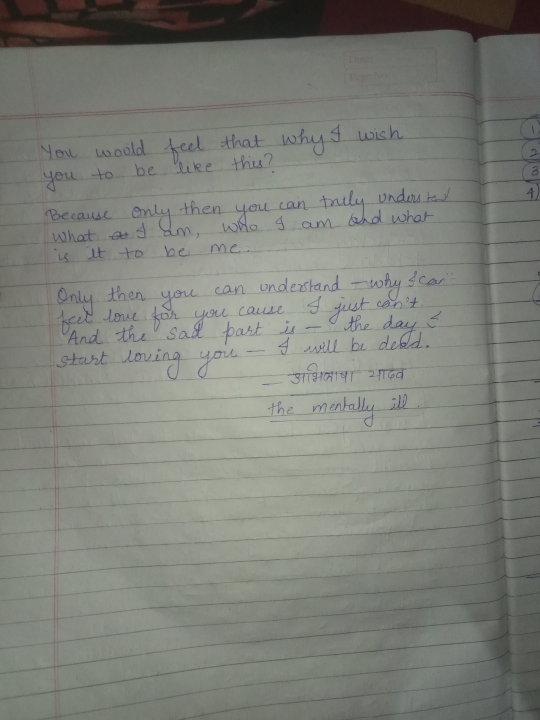 Date:
Page No.
You would feel that why I wish
you to be like this?
Because only then you can truly understand
what I am, who I am and what
is it to be me.
Only then you can understand – why I can
feel love for you cause I just can't
And the sad part is – the day I
start loving you – I will be dead.
– अभिलाषा यादव
the mentally ill.
1
2
3
4)